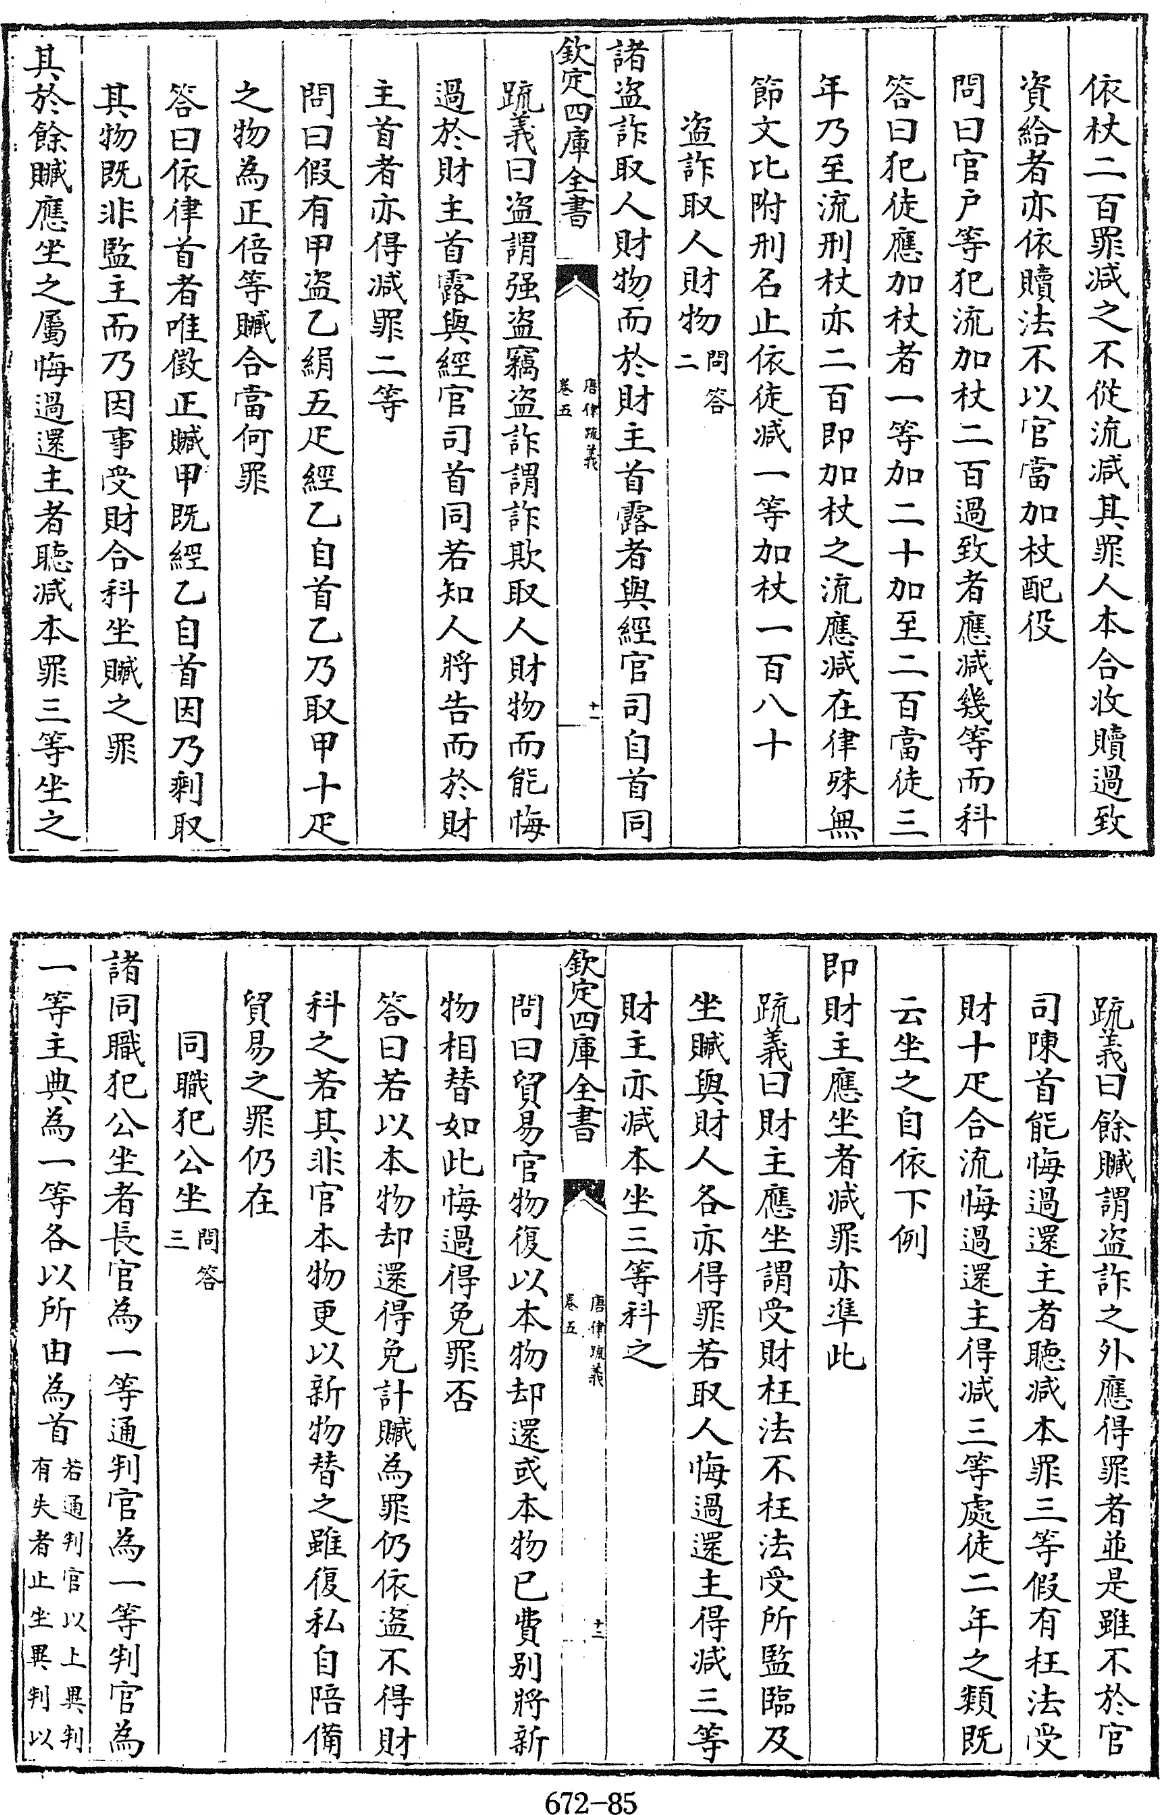 依杖二百罪減之不從流減其罪人本合收贖過致
資給者亦依贖法不以官當加杖配役
問曰官户等犯流加杖二百過致者應減幾等而科
答曰犯徒應加杖者一等加二十加至二百當徒三
年乃至流刑杖亦二百即加杖之流應減在律殊無
節文比附刑名止依徒減一等加杖一百八十
盜詐取人財物問答二
諸盜詐取人財物而於財主首露者與經官司自首同
欽定四庫全書
唐律疏義
卷五
十一
疏義曰盜謂强盜竊盜詐謂詐欺取人財物而能悔
過於財主首露與經官司首同若知人將告而於財
主首者亦得減罪二等
問曰假有甲盜乙絹五疋經乙自首乙乃取甲十疋
之物為正倍等贓合當何罪
答曰依律首者唯徵正贓甲既經乙自首因乃剩取
其物既非監主而乃因事受財合科坐贓之罪
其於餘贓應坐之屬悔過還主者聽減本罪三等坐之
疏義曰餘贓謂盜詐之外應得罪者並是雖不於官
司陳首能悔過還主者聽減本罪三等假有枉法受
財十疋合流悔過還主得減三等處徒二年之類既
云坐之自依下例
即財主應坐者減罪亦準此
疏義曰財主應坐謂受財枉法不枉法受所監臨及
坐贓與財人各亦得罪若取人悔過還主得減三等
財主亦減本坐三等科之
欽定四庫全書
唐律疏義
卷五
十二
問曰貿易官物復以本物却還或本物已費别將新
物相替如此悔過得免罪否
答曰若以本物却還得免計贓為罪仍依盜不得財
科之若其非官本物更以新物替之雖復私自陪備
貿易之罪仍在
同職犯公坐問答三
諸同職犯公坐者長官為一等通判官為一等判官為
一等主典為一等各以所由為首若通判官以上異判有失者止坐異判以
672-85